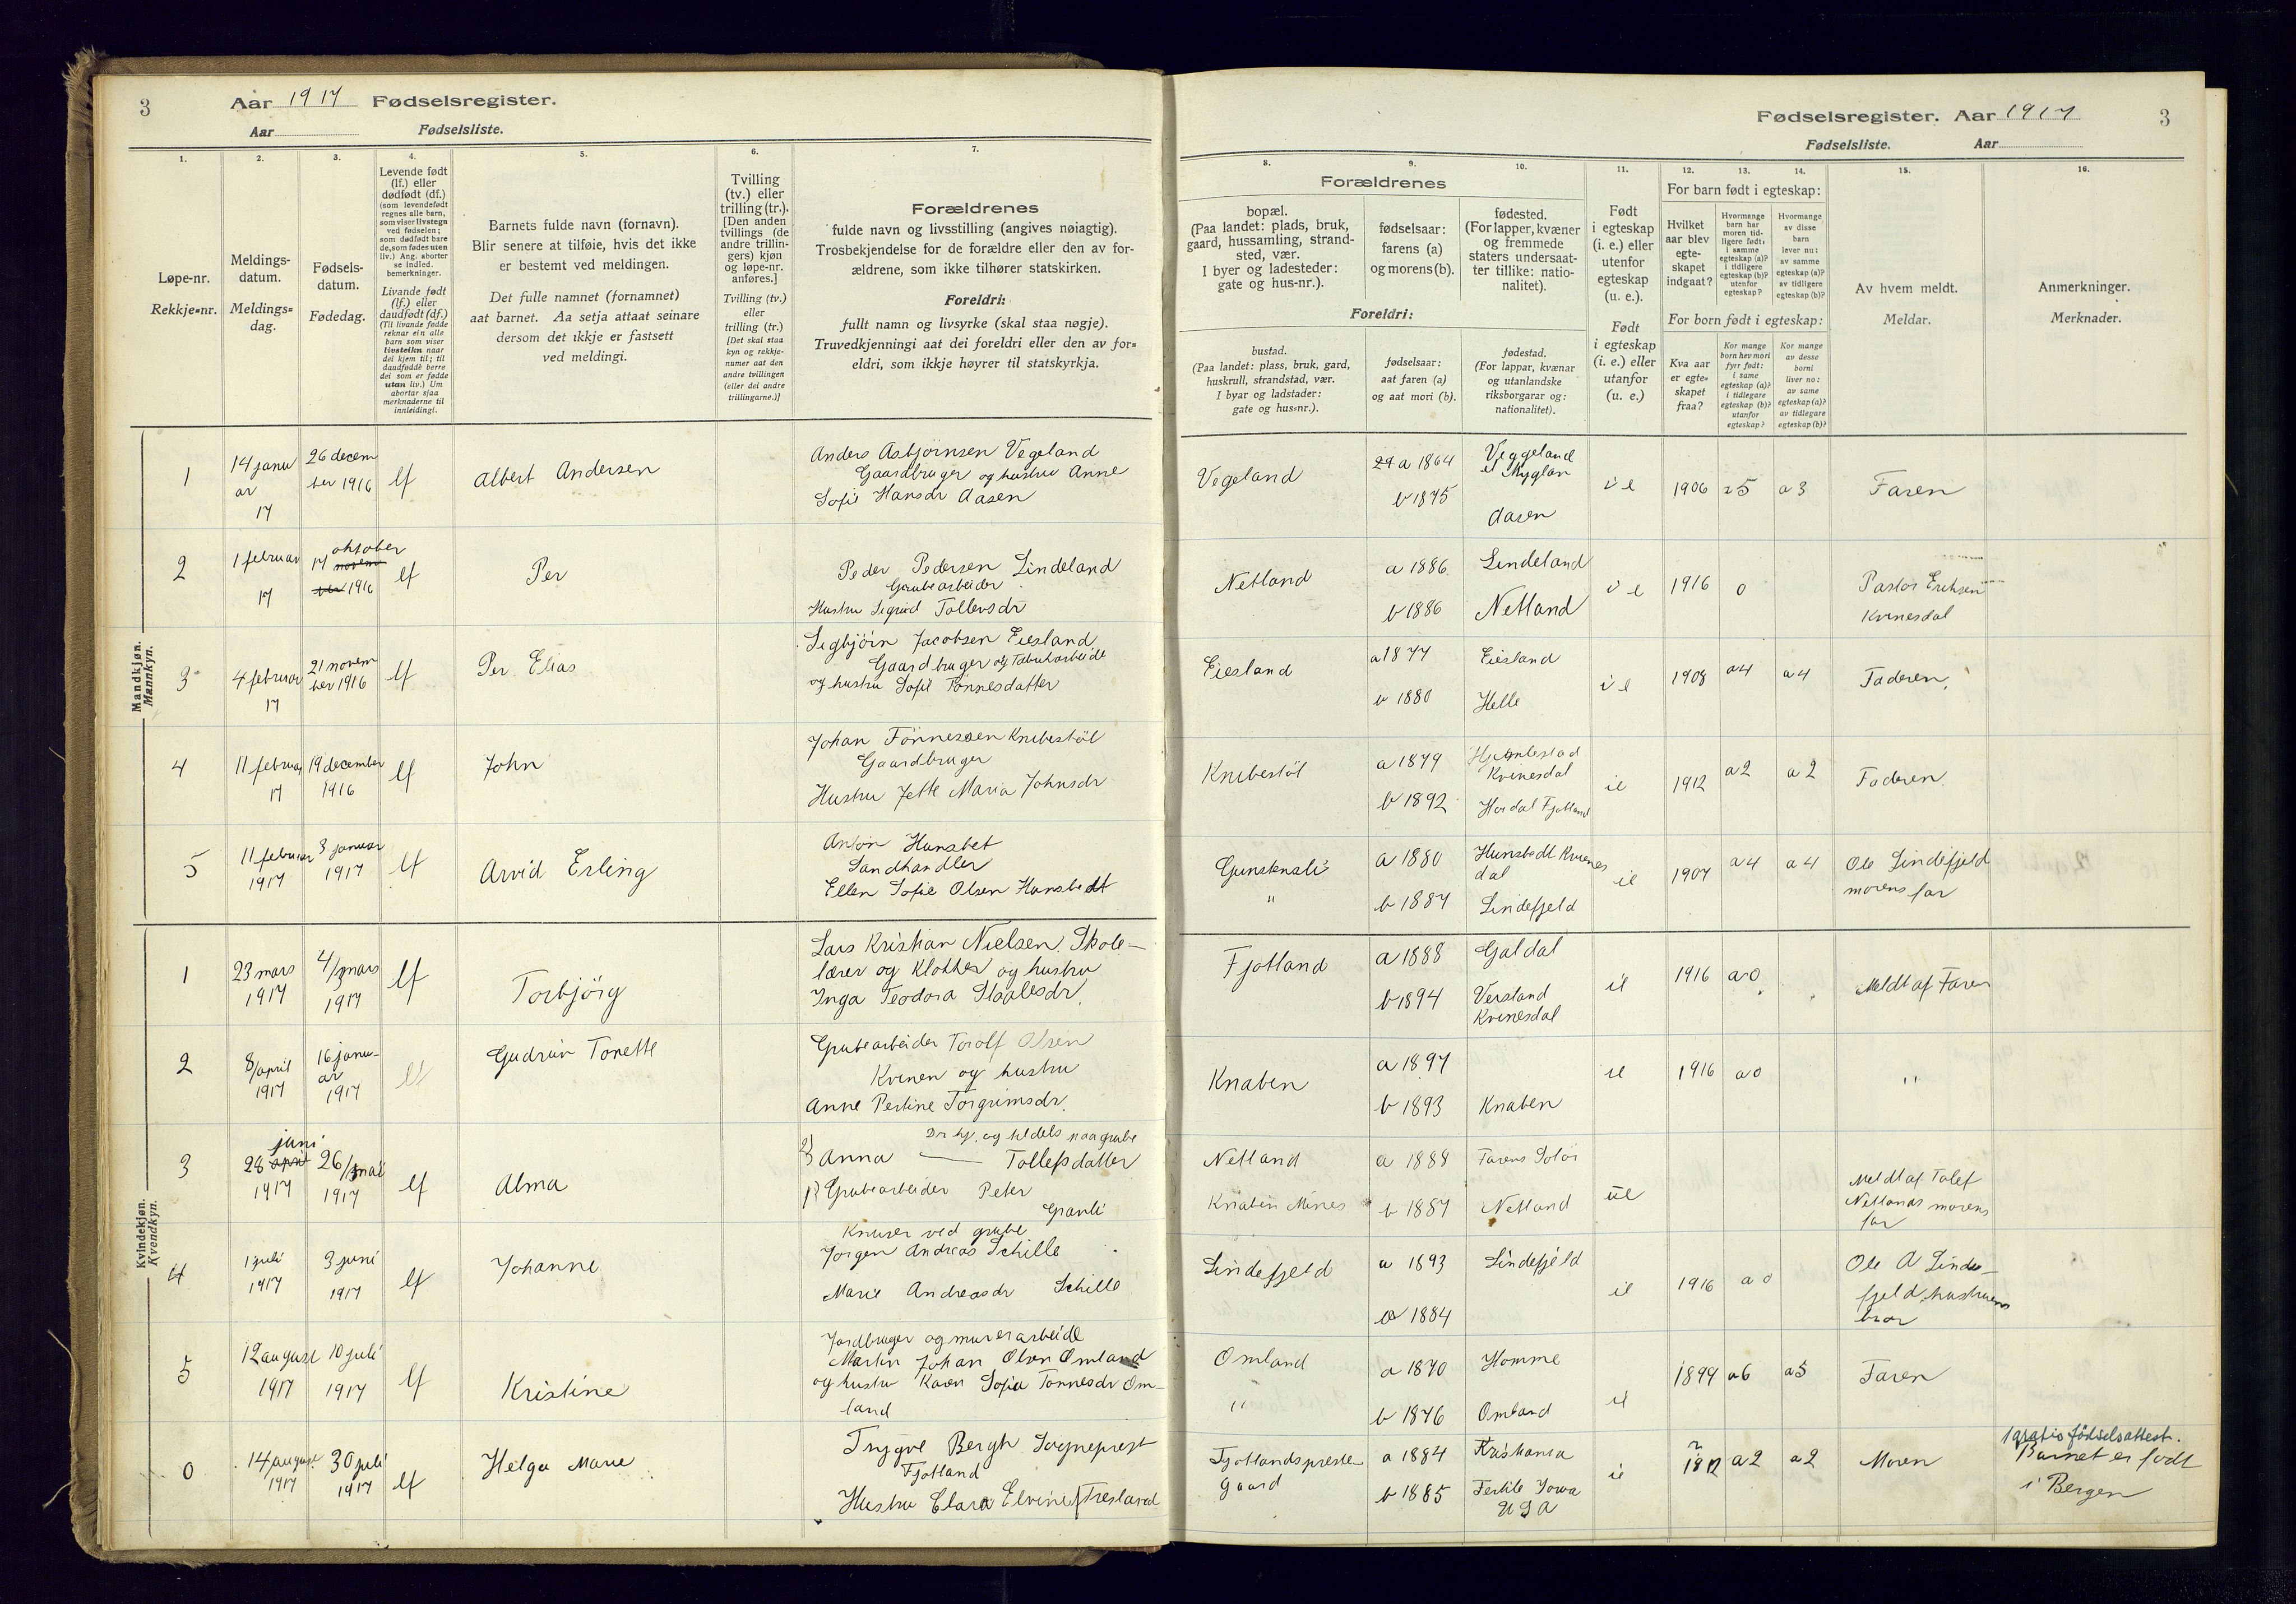 3
Aar 1917 Fødselsregister.
Aar Fødselsliste.
Fødselsregister. Aar 1917
3
Fødselsliste. Aar
1. 2. 3. 4. 5. 6. 7.
Løpe-nr.
Rekkje-nr.
Meldings-
datum.
Meldings-
dag.
Fødsels-
datum.
Fødedag.
Levende født
(lf.) eller
dødfødt (df.)
(som levendefødt
regnes alle barn,
som viser livstegn
ved fødselen;
som dødfødt bare
de, som fødes uten
liv.) Ang. aborter
se indled.
bemerkninger.
Livande født
(lf.) eller
daudfødt (df.)
(Til livande fødde
reknar ein alle
barn som viser
livsteikn naar
dei kjem til; til
daudfødde berre
dei som er fødde
utan liv.) Um
abortar sjaa
merknaderne til
innleidingi.
Barnets fulde navn (fornavn).
Blir senere at tilføie, hvis det ikke
er bestemt ved meldingen.
Det fulle namnet (fornamnet)
aat barnet. Aa setja attaat seinare
dersom det ikkje er fastsett
ved meldingi.
Tvilling
(tv.) eller
trilling (tr.).
[Den anden
tvillings (de
andre trillin-
gers) kjøn
og løpe-nr.
anføres.]
Tvilling (tv.)
eller
trilling (tr.)
[Det skal staa
kyn og rekkje-
numer aat den
andre tvillingen
(eller dei andre
trillingarne.)]
Forældrenes
fulde navn og livsstilling (angives nøiagtig).
Trosbekjendelse for de forældre eller den av for-
ældrene, som ikke tilhører statskirken.
Foreldri:
fullt namn og livsyrke (skal staa nøgje).
Truvedkjenningi aat dei foreldri eller den av for-
eldri, som ikkje høyrer til statskyrkja.
8. 9. 10. 11. 12. 13. 14. 15. 16.
Forældrenes
bopæl.
(Paa landet: plads, bruk,
gaard, hussamling, strand-
sted, vær.
I byer og ladesteder:
gate og hus-nr.).
fødselsaar:
farens (a)
og morens (b).
fødested.
(For lapper, kvæner
og fremmede
staters undersaat-
ter tillike: natio-
nalitet).
Foreldri:
bustad.
(Paa landet: plass, bruk, gard,
huskrull, strandstad, vær.
I byar og ladstader:
gate og hus-nr.).
fødselsaar:
aat faren (a)
og aat mori (b).
fødestad.
(For lappar, kvænar
og utanlandske
riksborgarar og:
nationalitet).
Født
i egteskap
(i. e.) eller
utenfor
egteskap
(u. e.).
Født
i egteskap
(i. e.) eller
utanfor
(u. e.)
For barn født i egteskap:
Hvilket
aar blev
egte-
skapet
indgaat?
Hvormange
barn har
moren tid-
ligere født:
i samme
egteskap (a)?
i tidligere
egteskap (b)?
utenfor
egteskap?
Hvormange
av disse
barn
lever nu:
av samme
egteskap (a)?
av tidligere
egteskap (b)?
For born født i egteskap:
Kva aar
er egte-
skapet
fraa?
Kor mange
born hev mori
fyrr født:
i same
egteskap (a)?
i tidlegare
egteskap (b)?
utanfor
egteskap?
Kor mange
av desse
borni
liver no:
av same
egteskap (a)?
av tidlegare
egteskap (b)?
Av hvem meldt.
Meldar.
Anmerkninger.
Merknader.
Mandkjøn.
Mannkyn.
1 14 janu
ar
17
26 decem
ber 1916
lf
Albert Andersen
Anders Asbjørnsen Vegeland
Gaardbruger og hustru Anne
Sofie Hansdr Aasen
Vegeland
a 1864
b 1875
Veggeland
Aasen
i e 1906 5 a 3 Faren
2 1 februar
17
17 oktober
1916
lf
Per
Peder Pedersen Lindeland
Grubearbeider
Hustru Sigrid Tollevsdr
Netland
a 1886
b 1886
Lindeland
Netland
i e 1916 0
Pastor Eriksen
Kvinesdal
3 4 februar
17
21 novem
ber 1916
lf
Per Elias
Sigbjørn Jacobsen Eiesland
Gaardbruger og Fabrikarbeide
og hustru Sofie Tønnesdatter
Eiesland
a 1877
b 1880
Eiesland
Helle
i e 1908 a 4 a 4 Faderen.
4 11 februar
17
19 december
1916
lf
John
Johan Tønnessen Knibestøl
Gaardbruger
Hustru Jette Maria Johnsdr
Knibestøl
a 1879
b 1892
Kvinesdal
Hordal Fjotland
ie 1912 a 2 a 2 Faderen.
5 11 februar
1917
3 januar
1917
lf
Arvid Erling
Anton Hunsbet
Landhandler
Ellen Sofie Olsen Hunsbedt
Gunstensli
"
a 1880
b 1887
Hunsbedt Kvines
dal
Lindefjeld
ie 1907 a 4 a 4
Ole Lindefjeld
morens far
Kvindekjøn.
Kvendkyn.
1 23 mars
1917
4/3 mars
1917
lf
Torbjörg
Lars Kristian Nielsen. Skole-
lærer og Klokker og hustru
Inga Teodora Staalesdr.
Fjotland
a 1888
b 1894
Galdal
Versland
Kvinesdal
ie 1916 a 0 Meldt af Faren
2 8/april
1917
16 janu-
ar
1917
lf
Gudrun Tonette
Grubearbeider Torolf Olsen
Kvinen og hustru
Anne Pertine Torgrimsdr.
Knaben
a 1897
b 1893
Knaben
ie 1916 a 0 "
3 28 april juni
1917
26/5 mai
1917
lf
Alma
og tildels paa grube
2) Anna — Tollefsdatter
1) Grubearbeider Peter
Granli
Netland
Knaben Mines
a 1888
b 1887
Farens Solör
Netland
ue
Meldt af Tolef
Netlands morens
far
4 1 juli
1917
3 juni
1917
lf
Johanne
Knuser ved grube
Jørgen Andreas Schille
Marie Andreasdr Schille
Lindefjeld
a 1893
1884
Lindefjeld
ie 1916 a 0
Ole A Linde-
fjeld, hustruens
bror
5 12 august
1917
10 juli
1917
lf
Kristine
Jordbruger og murerarbeide
Martin Johan Olsen Omland
og hustru Karen Sofie Tønnesdr Om-
land
Omland
"
a 1870
b 1876
Homme
Omland
ie 1899 a 6 a 5 Faren
0 14 august
1917
30 juli
1917
lf
Helga Marie
Trygve Bergh Sogneprest
Fjotland
Hustru Clara Elvine
Fjotlandspreste
gaard
a 1884
b 1885
Kristiania
Fertile Iowa
USA
ie a 2 a 2 Moren
1 gratis fødselsattest.
Barnet er født
i Bergen